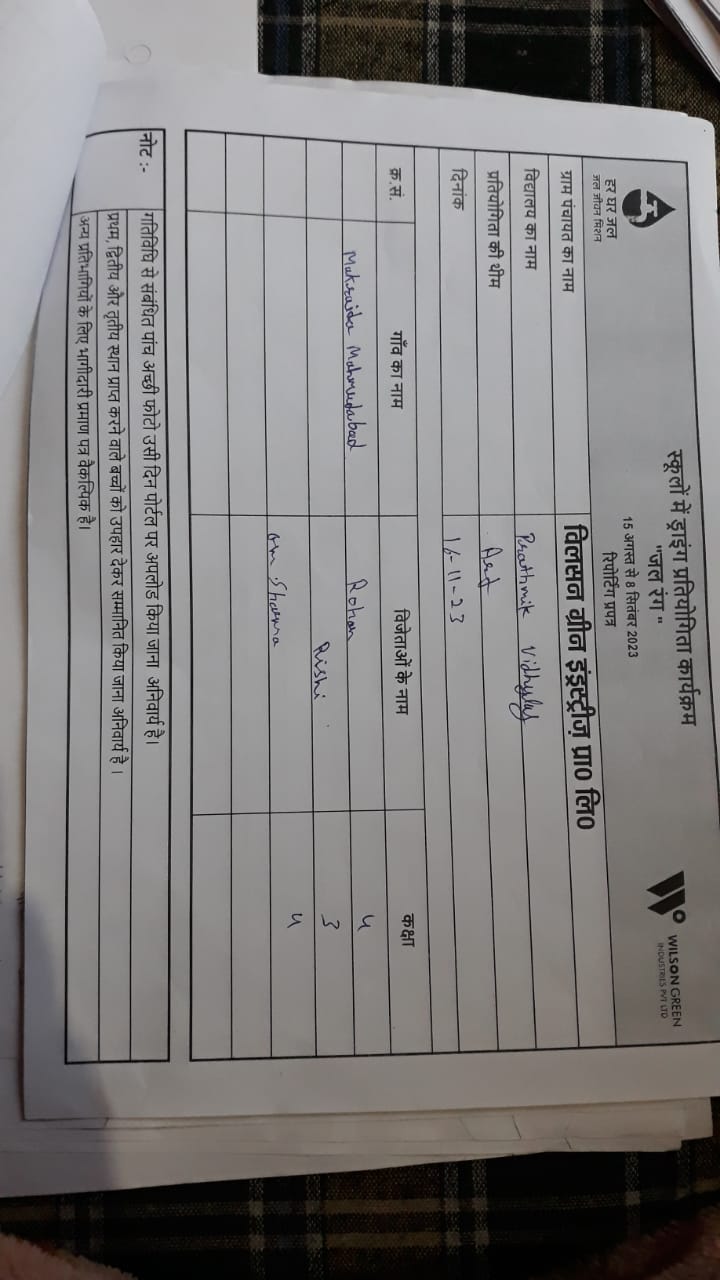 हर घर जल
जल जीवन मिशन
स्कूलों में ड्राइंग प्रतियोगिता कार्यक्रम
"जल रंग "
15 अगस्त से 8 सितंबर 2023
रिपोर्टिंग प्रपत्र
WILSON GREEN
INDUSTRIES PVT LTD
ग्राम पंचायत का नाम विलसन ग्रीन इंडस्ट्रीज़ प्रा० लि०
विद्यालय का नाम Prathmik Vidhyalay
प्रतियोगिता की थीम Art
दिनांक 16-11-23
क्र.सं. गाँव का नाम विजेताओं के नाम कक्षा
Mahmudabad Rohan 4
Rishi 3
Om Sharma 4
नोट :- गतिविधि से संबंधित पांच अच्छी फोटो उसी दिन पोर्टल पर अपलोड किया जाना अनिवार्य है।
प्रथम, द्वितीय और तृतीय स्थान प्राप्त करने वाले बच्चों को उपहार देकर सम्मानित किया जाना अनिवार्य है ।
अन्य प्रतिभागियों के लिए भागीदारी प्रमाण पत्र वैकल्पिक है।